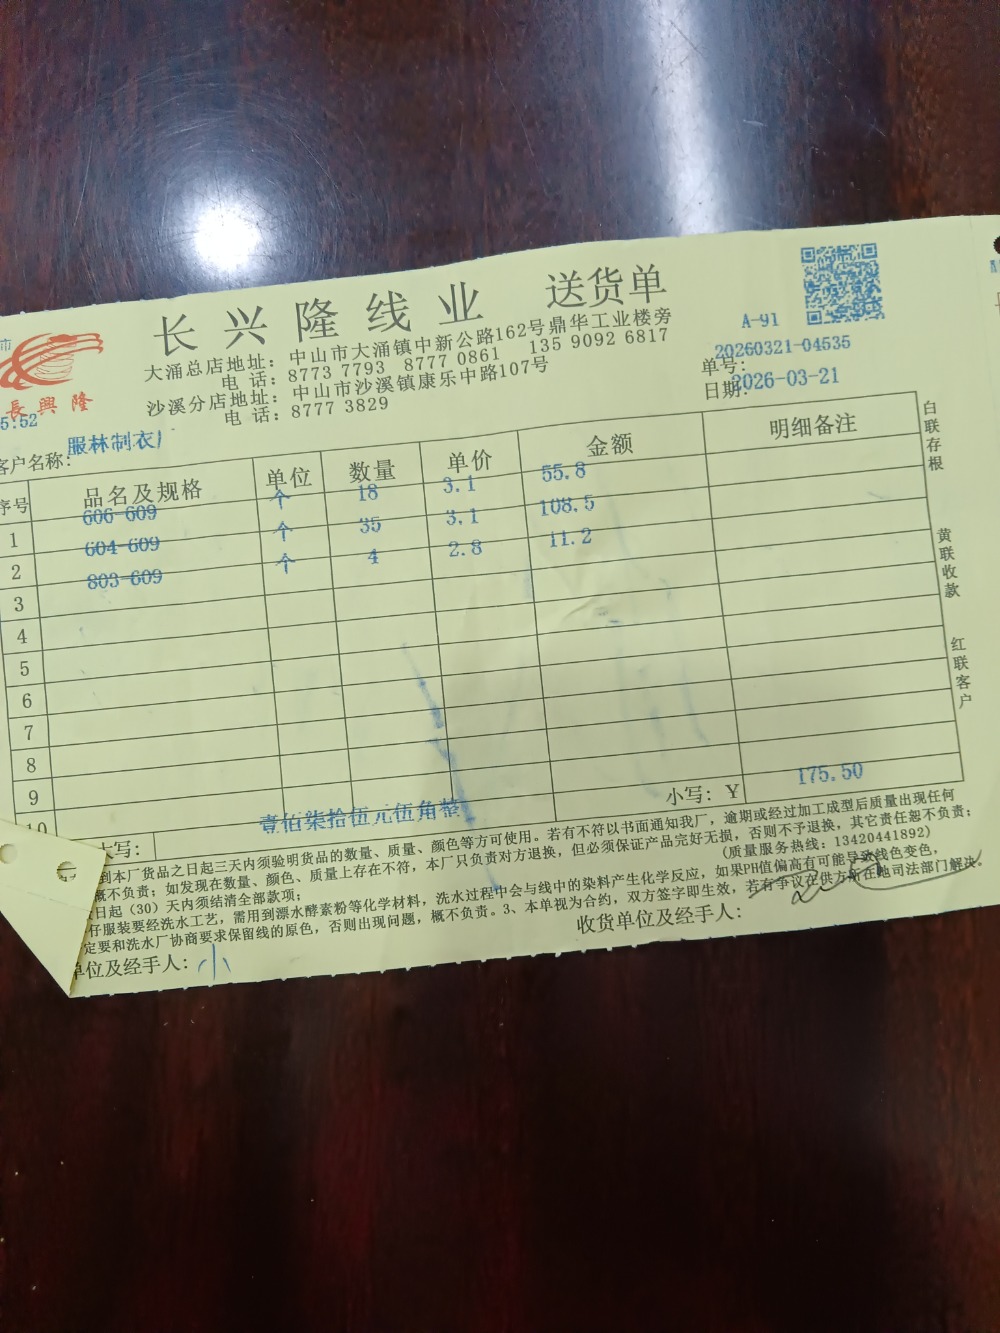 长兴隆线业 送货单
市
長興隆
大涌总店地址：中山市大涌镇中新公路162号鼎华工业楼旁
电 话：8773 7793 8777 0861 135 9092 6817
沙溪分店地址：中山市沙溪镇康乐中路107号
电 话：8777 3829
A-91
单号：20260321-04535
日期：2026-03-21
5:52
客户名称：服林制衣厂
序号 品名及规格 单位 数量 单价 金额 明细备注
1 606-609 个 18 3.1 55.8
2 604-609 个 35 3.1 108.5
3 803-609 个 4 2.8 11.2
4
5
6
7
8
9
10
大写：壹佰柒拾伍元伍角整 小写：Y 175.50
到本厂货品之日起三天内须验明货品的数量、质量、颜色等方可使用。若有不符以书面通知我厂，逾期或经过加工成型后质量出现任何
概不负责；如发现在数量、颜色、质量上存在不符，本厂只负责对方退换，但必须保证产品完好无损，否则不予退换，其它责任恕不负责；
日起（30）天内须结清全部款项； (质量服务热线：13420441892)
仔服装要经洗水工艺，需用到漂水酵素粉等化学材料，洗水过程中会与线中的染料产生化学反应，如果PH值偏高有可能导致线色变色，
定要和洗水厂协商要求保留线的原色，否则出现问题，概不负责。3、本单视为合约，双方签字即生效，若有争议在供方所在地司法部门解决。
单位及经手人：小 收货单位及经手人：
白联存根
黄联收款
红联客户